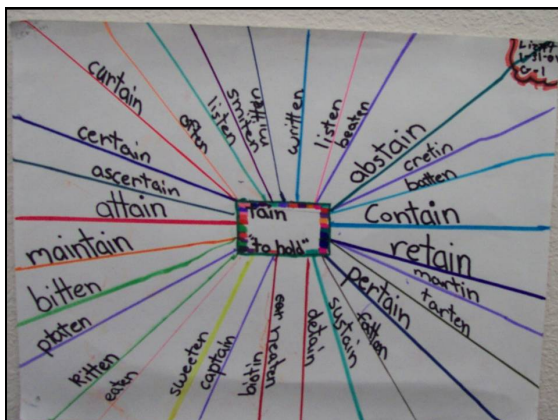 tain
"to hold"
curtain
often
listen
smitten
mitten
written
listen
beaten
abstain
cretin
batten
contain
retain
martin
tarten
pertain
fatten
sustain
detain
biotin
captain
sweeten
eaten
kitten
platen
bitten
maintain
attain
ascertain
certain